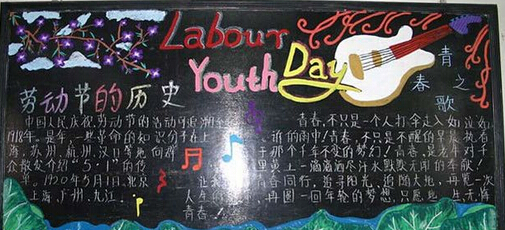 Labour
Youth Day
劳动节的历史
中国人民庆祝劳动节的活动可追溯至
1918年。是年，一些革命的知识分子在上
海、苏州、杭州、汉口等地向群
众散发介绍"5·1"的传
单。1920年5月1日，北京、
上海、广州、九江、
青春之歌
青春，不只是一个人打伞走入如泣如
诉的雨中！青春，不只是不醒的早晨执着
于那个千年不变的梦幻！青春，是老牛对于
黑土一滴滴尽汗水默默无闻的奉献！
青春同行，追寻阳光，追随大地，再览一次
人生的，再圆一回年轮的梦想，只愿此生无悔
青春！